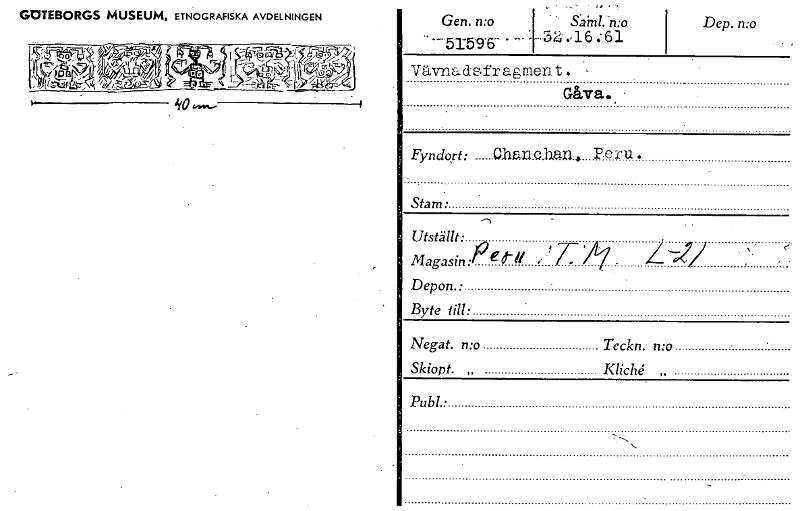 GÖTEBORGS MUSEUM, ETNOGRAFISKA AVDELNINGEN
40 cm
Gen. n:o Saml. n:o Dep. n:o
51596 32.16.61
Vävnadsfragment.
Gåva.
Fyndort: Chanchan, Peru.
Stam:
Utställt:
Magasin: Peru T.M. L-21
Depon.:
Byte till:
Negat. n:o Teckn. n:o
Skiopt. „ Kliché „
Publ.: